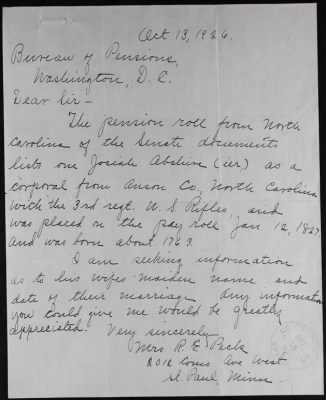 Oct 13, 1926.
Bureau of Pensions,
Washington, D. C.
Dear Sir -
The pension roll from North
Carolina of the Senate documents
lists one Josiah Abshire (ier) as a
corporal from Anson Co., North Carolina
with the 3rd regt. U. S Rifles, and
was placed on the pay roll Jan. 12, 1827.
and was born about 1763.
I am seeking information
as to his wifes maiden name and
date of their marriage. Any information
you could give me would be greatly
appreciated.
Very sincerely
Mrs R. E. Peck
2012 Ave West
St. Paul, Minn.